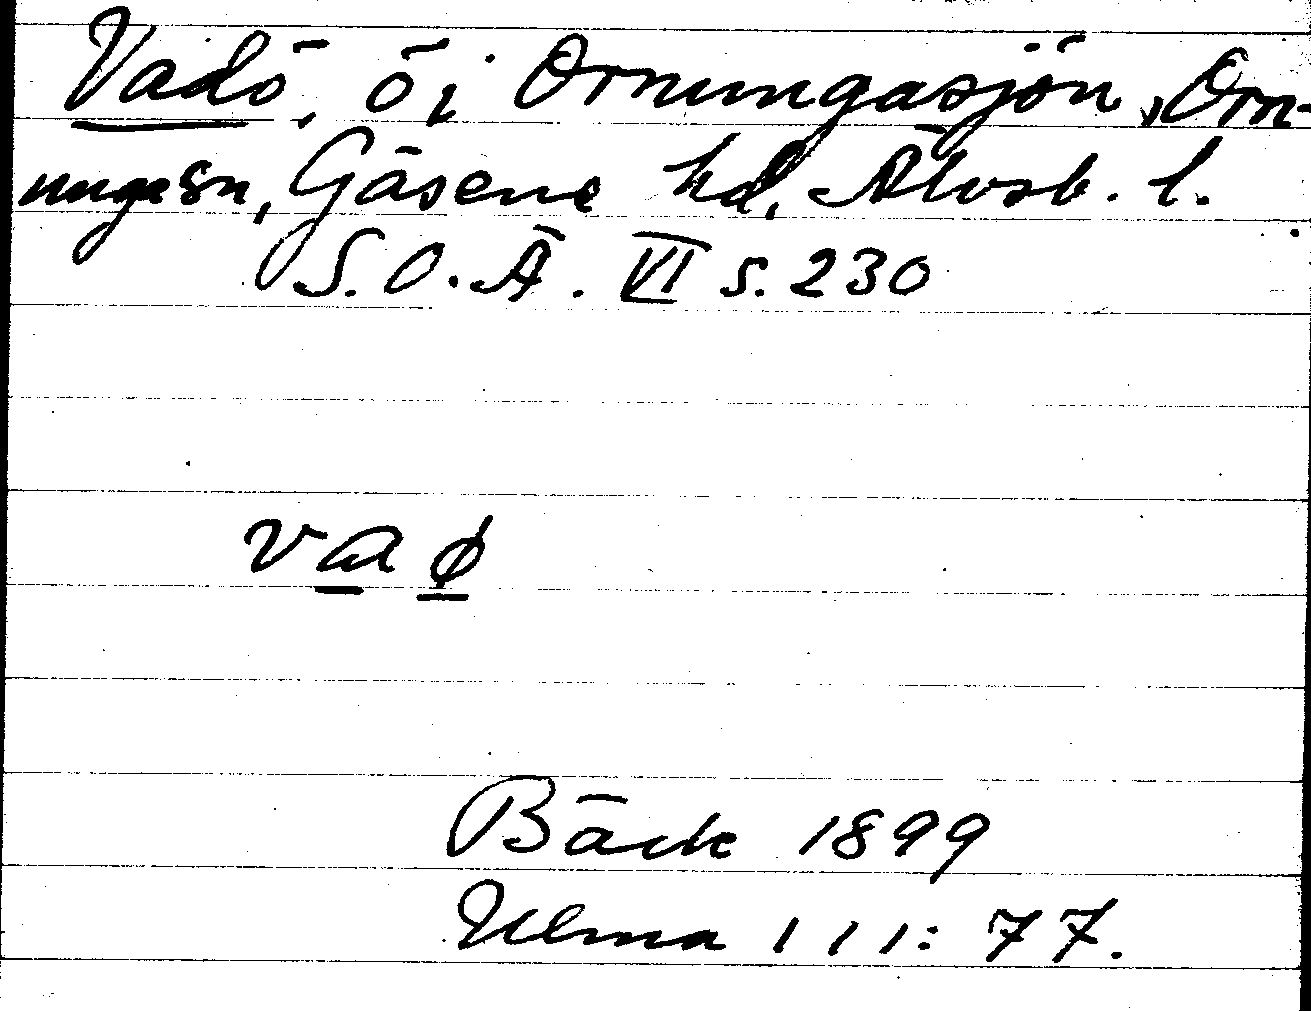 Vadö, ö i Ornungasjön, Orn-
ungasn, Gäsene hd, Älvsb. l.
S.O.Ä. VI s. 230
va ø
Bäck 1899
Ulma 111: 77.